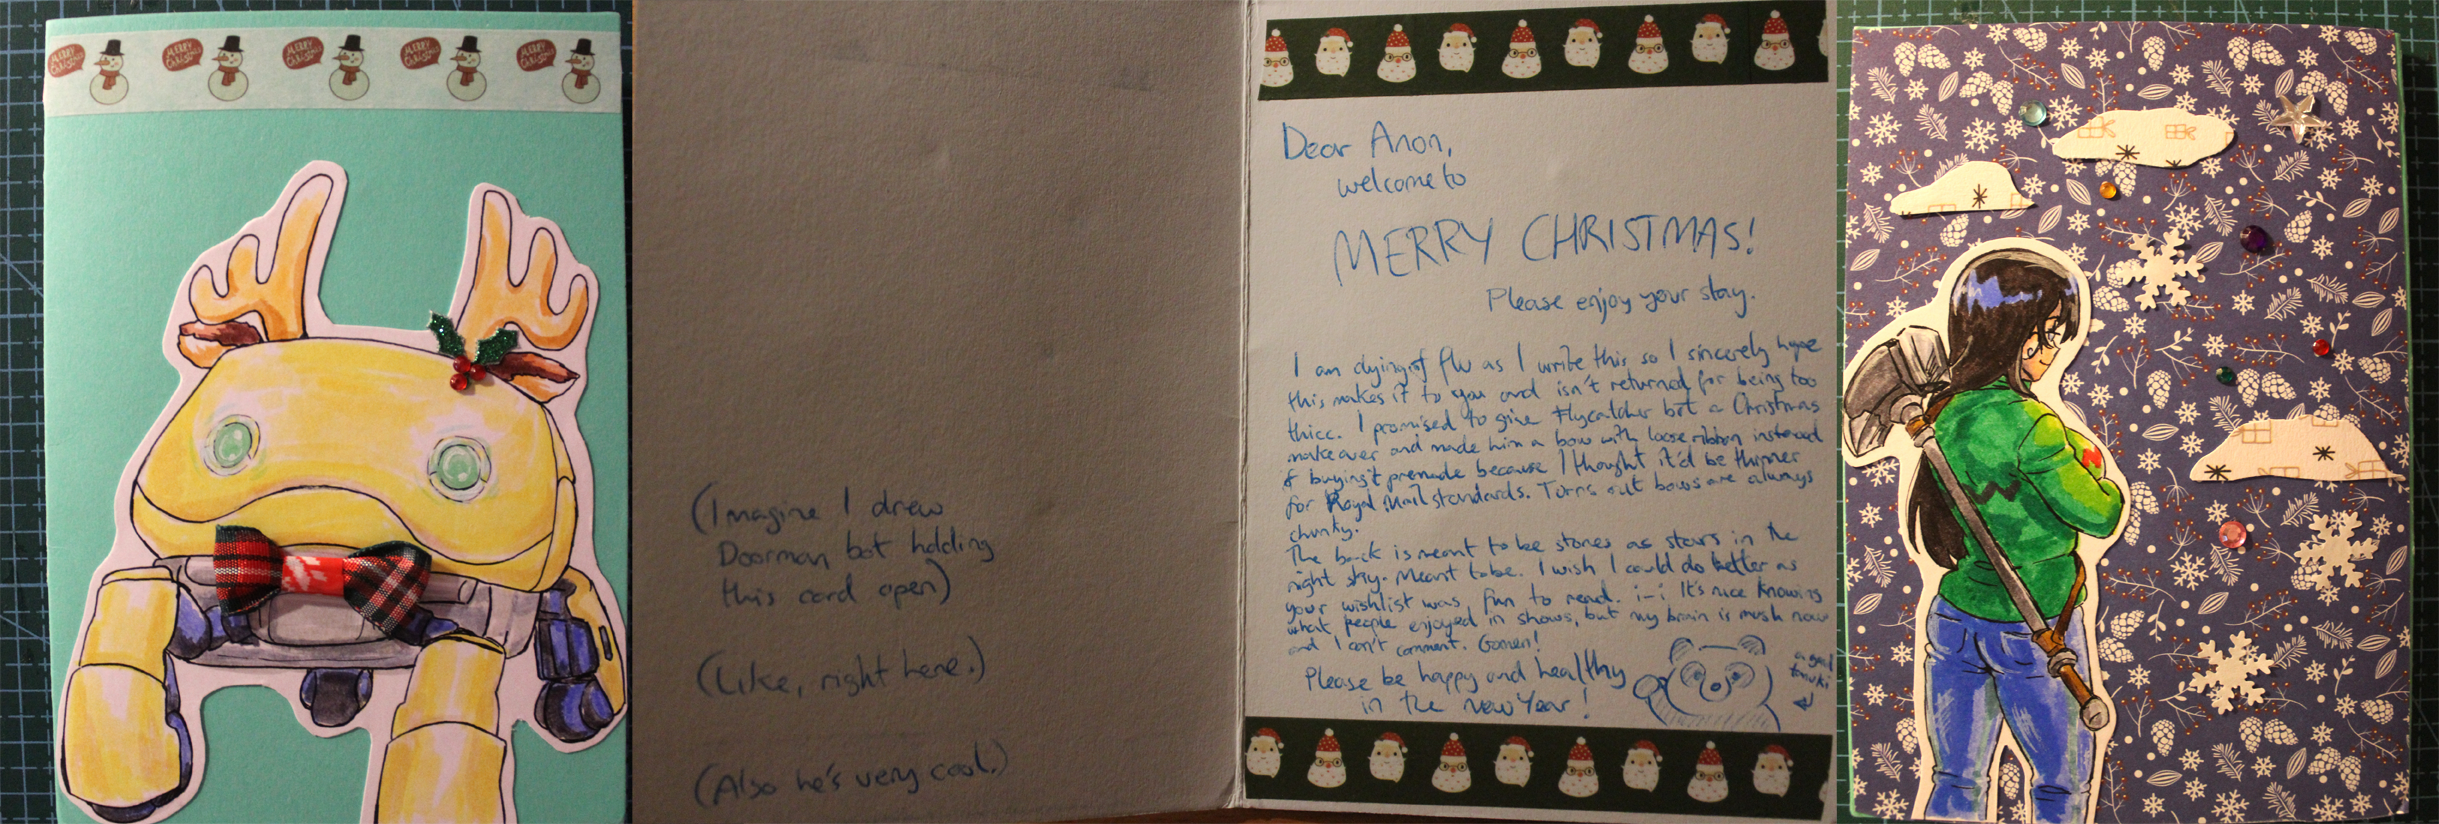 MERRY CHRISTMAS
MERRY CHRISTMAS
MERRY CHRISTMAS
MERRY CHRISTMAS
MERRY CHRISTMAS
(Imagine I drew
Doorman bot holding
this card open)
(Like, right here.)
(Also he's very cool.)
Dear Anon,
welcome to
MERRY CHRISTMAS!
Please enjoy your stay.
I am dying of flu as I write this so I sincerely hope
this makes it to you and isn't returned for being too
thicc. I promised to give Flycatcher bot a Christmas
makeover and made him a bow with loose ribbon instead
of buying it premade because I thought it'd be thinner
for Royal Mail standards. Turns out bows are always
chunky.
The back is meant to be stones as stars in the
night sky. Meant to be. I wish I could do better as
your wishlist was fun to read. ;-; It's nice knowing
what people enjoyed in shows, but my brain is mush now
and I can't comment. Gomen!
Please be happy and healthy
in the new Year!
a
tanuki